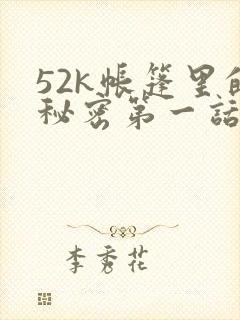 52k帐篷里的
秘密第一話
李秀花